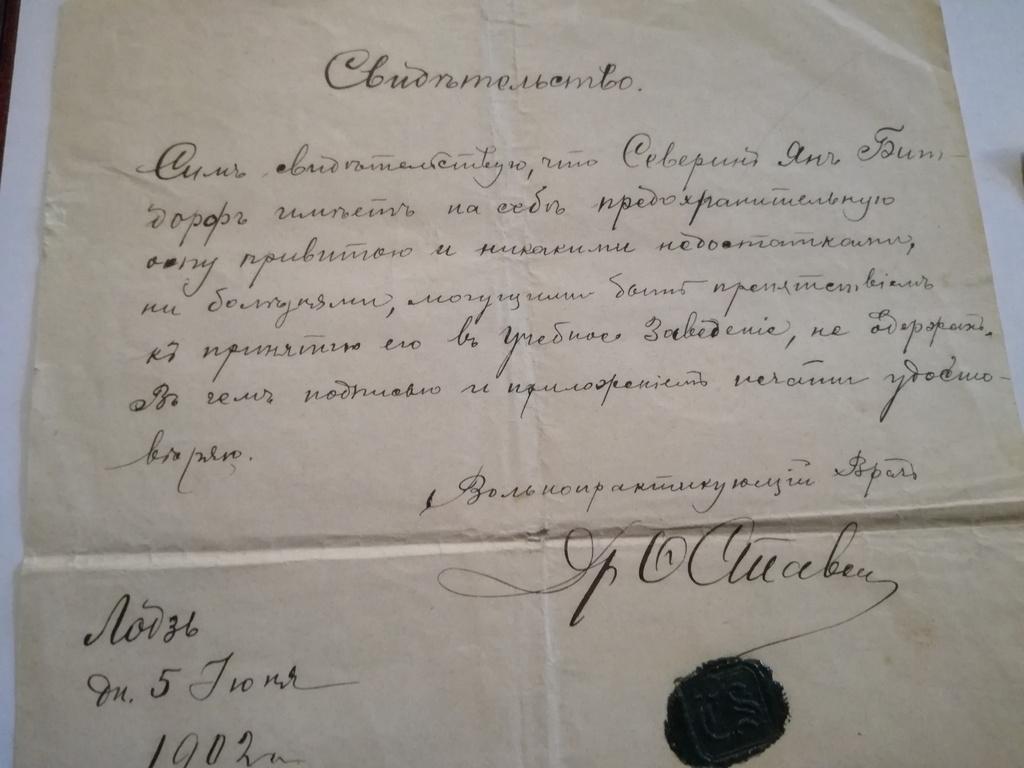 Свидѣтельство.
Симъ свидѣтельствую, что Северинъ Янъ Бит-
дорфъ имѣетъ на себѣ предохранительную
оспу привитою и никакими недостатками,
ни болѣзнями, могущими быть препятствіемъ
къ принятію его въ Учебное Заведеніе, не одержимъ.
Въ чемъ подписью и приложеніемъ печати удосто-
вѣряю.
Вольнопрактикующій Врачъ
Др О Ставен
Лодзь
дн. 5 Іюня
1902 г